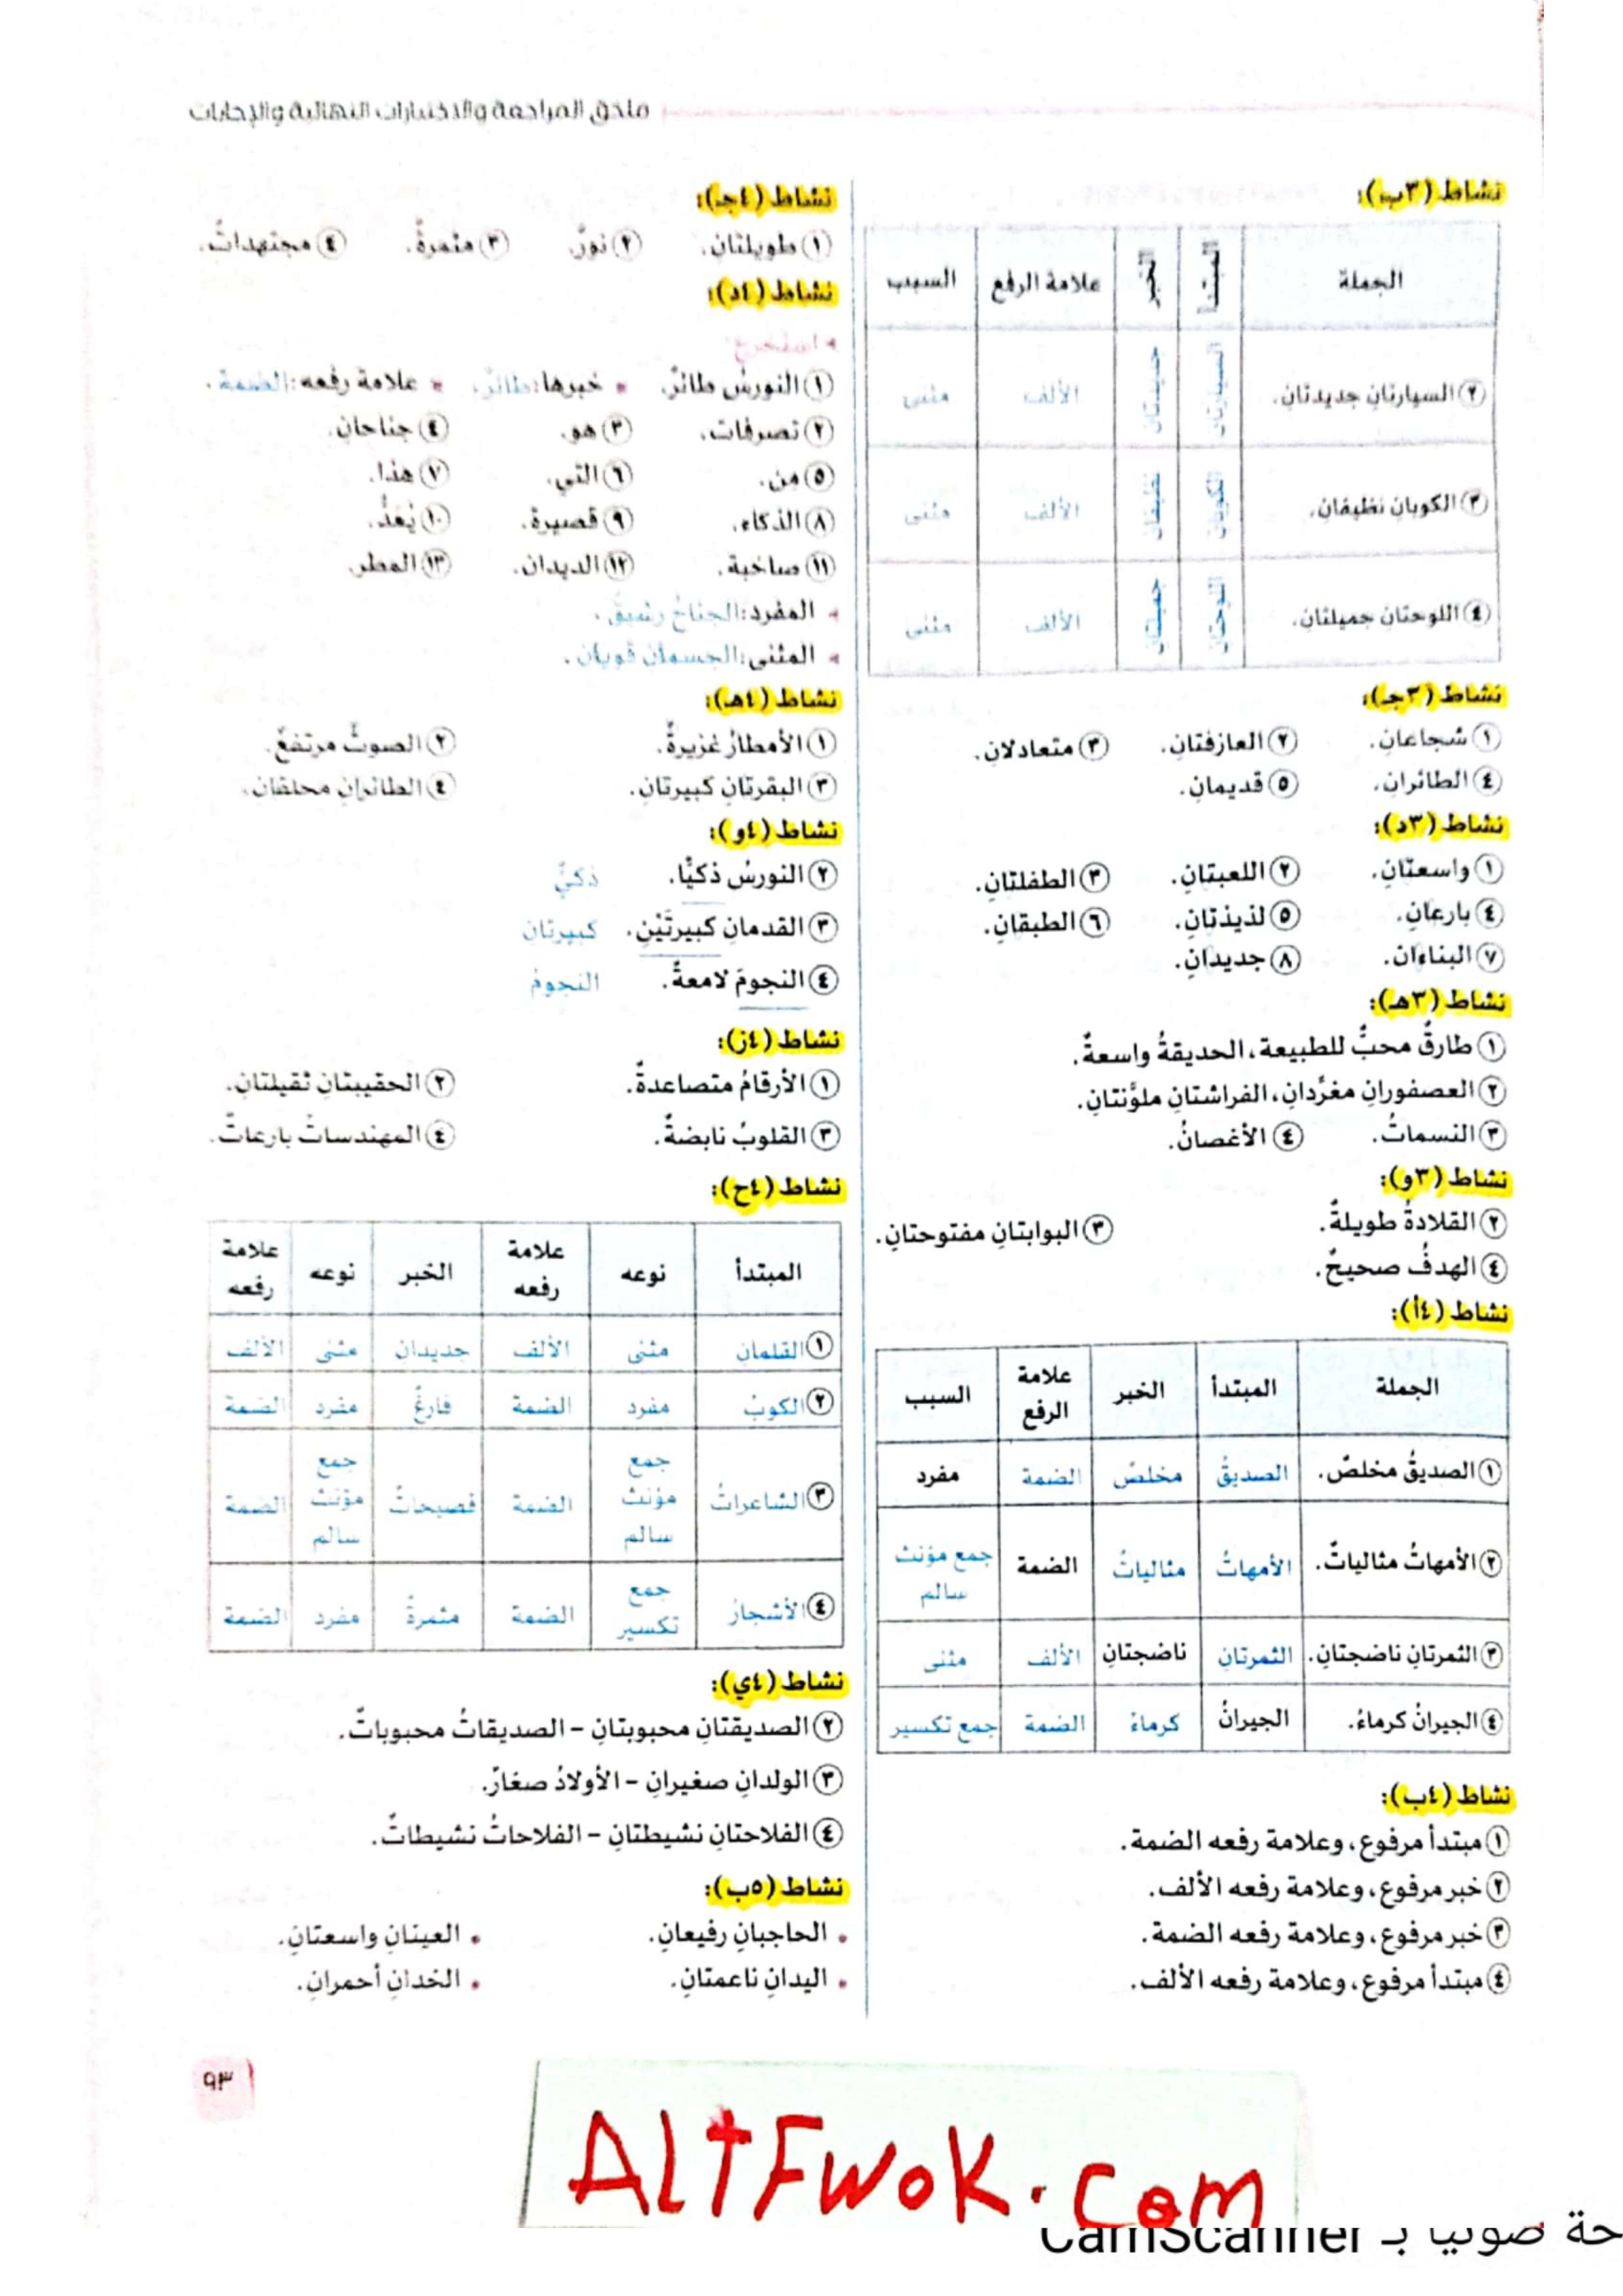 ملحق المراجعة والاختبارات النهائية والإجابات
نشاط (٣ب):
الجملة المبتدأ الخبر علامة الرفع السبب
٢ السيارتان جديدتان. السيارتان جديدتان الألف مثنى
٣ الكوبانِ نظيفانِ. الكوبان نظيفان الألف مثنى
٤ اللوحتان جميلتانِ. اللوحتان جميلتان الألف مثنى
نشاط (٣جـ):
١ شجاعانِ. ٢ العازفتانِ. ٣ متعادلانِ.
٤ الطائرانِ. ٥ قديمانِ.
نشاط (٣د):
١ واسعتانِ. ٢ اللعبتانِ. ٣ الطفلتانِ.
٤ بارعانِ. ٥ لذيذتانِ. ٦ الطبقانِ.
٧ البناءان. ٨ جديدانِ.
نشاط (٣هـ):
١ طارقٌ محبٌّ للطبيعة، الحديقةُ واسعةٌ.
٢ العصفورانِ مغرِّدانِ، الفراشتانِ ملوَّنتانِ.
٣ النسماتُ. ٤ الأغصانُ.
نشاط (٣و):
٢ القلادةُ طويلةٌ. ٣ البوابتانِ مفتوحتانِ.
٤ الهدفُ صحيحٌ.
نشاط (٤أ):
الجملة المبتدأ الخبر علامة الرفع السبب
١ الصديقُ مخلصٌ. الصديقُ مخلصٌ الضمة مفرد
٢ الأمهاتُ مثالياتٌ. الأمهاتُ مثالياتٌ الضمة جمع مؤنث سالم
٣ الثمرتانِ ناضجتانِ. الثمرتانِ ناضجتانِ الألف مثنى
٤ الجيرانُ كرماءُ. الجيرانُ كرماءُ الضمة جمع تكسير
نشاط (٤ب):
١ مبتدأ مرفوع، وعلامة رفعه الضمة.
٢ خبر مرفوع، وعلامة رفعه الألف.
٣ خبر مرفوع، وعلامة رفعه الضمة.
٤ مبتدأ مرفوع، وعلامة رفعه الألف.
نشاط (٤جـ):
١ طويلتانِ. ٢ نورٌ. ٣ مثمرةٌ. ٤ مجتهداتٌ.
نشاط (٤د):
استخرج:
١ النورسُ طائرٌ. خبرها: طائرٌ. علامة رفعه: الضمة.
٢ تصرفات. ٣ هو. ٤ جناحان.
٥ من. ٦ التي. ٧ هذا.
٨ الذكاء. ٩ قصيرة. ١٠ يُعَدُّ.
١١ صاخبة. ١٢ الديدان. ١٣ المطر.
المفرد: الجناحُ رشيقٌ.
المثنى: الجسمان قويان.
نشاط (٤هـ):
١ الأمطارُ غزيرةٌ. ٢ الصوتُ مرتفعٌ.
٣ البقرتانِ كبيرتانِ. ٤ الطائرانِ محلقان.
نشاط (٤و):
٢ النورسُ ذكيًّا. ذكيٌّ
٣ القدمانِ كبيرتَيْنِ. كبيرتانِ
٤ النجومَ لامعةٌ. النجومُ
نشاط (٤ز):
١ الأرقامُ متصاعدةٌ. ٢ الحقيبتانِ ثقيلتانِ.
٣ القلوبُ نابضةٌ. ٤ المهندساتُ بارعاتٌ.
نشاط (٤ح):
المبتدأ نوعه علامة رفعه الخبر نوعه علامة رفعه
١ القلمانِ مثنى الألف جديدان مثنى الألف
٢ الكوبُ مفرد الضمة فارغٌ مفرد الضمة
٣ الشاعراتُ جمع مؤنث سالم الضمة فصيحاتٌ جمع مؤنث سالم الضمة
٤ الأشجارُ جمع تكسير الضمة مثمرةٌ مفرد الضمة
نشاط (٤ي):
٢ الصديقتانِ محبوبتانِ – الصديقاتُ محبوباتٌ.
٣ الولدانِ صغيرانِ – الأولادُ صغارٌ.
٤ الفلاحتانِ نشيطتانِ – الفلاحاتُ نشيطاتٌ.
نشاط (٥ب):
الحاجبانِ رفيعانِ. العينانِ واسعتانِ.
اليدانِ ناعمتانِ. الخدانِ أحمرانِ.
٩٣
ALTFWOK.COM
حة ضوئيا بـ CamScanner